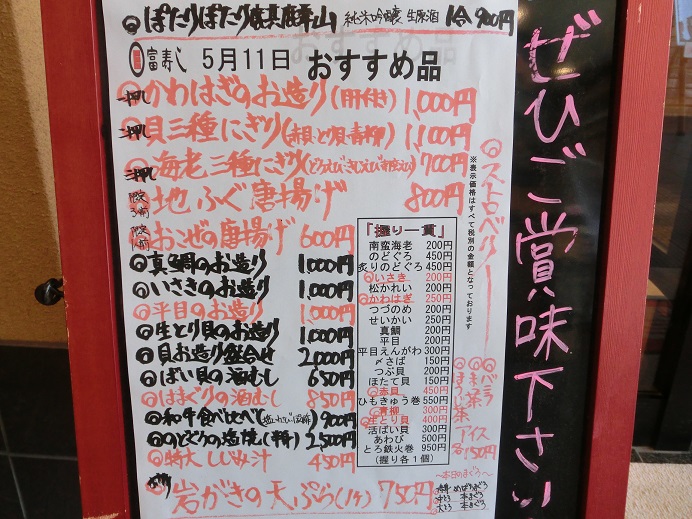 ぽたりぽたり 純米吟醸 生原酒 1合 900円
富寿し 5月11日 おすすめ品
一押し かわはぎのお造り(肝付き) 1,000円
二押し 貝三種にぎり(赤貝とり貝青柳) 1,100円
三押し 海老三種にぎり 700円
限定 地ふぐ唐揚げ 800円
限定 おこぜの唐揚げ 600円
真鯛のお造り 1,000円
いさきのお造り 1,000円
平目のお造り 1,000円
生とり貝のお造り 1,000円
貝お造り盛合せ 2,000円
ばい貝の酒むし 650円
はまぐりの酒むし 850円
和牛食べ比べ 900円
のどぐろの塩焼(半身) 2,500円
特大しじみ汁 450円
岩がきの天ぷら(1ケ) 750円
「握り一貫」
南蛮海老 200円
のどぐろ 450円
炙りのどぐろ 450円
いさき 200円
松かれい 200円
かわはぎ 250円
つづのめ 200円
せいかい 250円
真鯛 200円
平目 200円
平目えんがわ 300円
〆さば 150円
つぶ貝 200円
ほたて貝 150円
赤貝 450円
ひもきゅう巻 550円
青柳 300円
生とり貝 400円
活ばい貝 300円
あわび 500円
とろ鉄火巻 950円
(握り各1個)
※表示価格はすべて税別の金額となっております
ストロベリー
バニラ
抹茶
ほうじ茶
アイス
各150円
〜本日のまぐろ〜
ぜひご賞味下さい